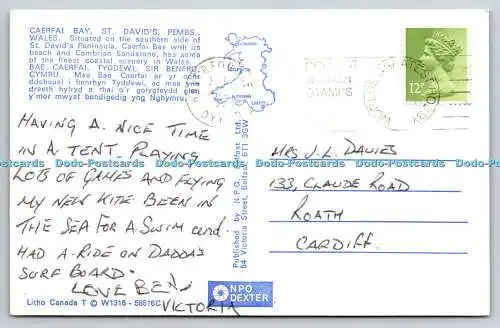 CAERFAI BAY, ST. DAVID'S, PEMBS.,
WALES. Situated on the southern side of
St. David's Peninsula, Caerfai Bay with its
beach and Cambrian Sandstone, has some
of the finest coastal scenery in Wales.
BAE CAERFAI, TYDDEWI, SIR BENFRO,
CYMRU. Mae Bae Caerfai ar yr ochr
ddeheuol i benrhyn Tyddewi, ac mae yna
draeth hyfryd a rhai o'r golygfeydd
y'mor mwyaf bendigedig yng Nghymru.
HAVING A NICE TIME
IN A TENT. PLAYING
LOTS OF GAMES AND FLYING
MY NEW KITE. BEEN IN
THE SEA FOR A SWIM and
HAD A RIDE ON DADDA'S
SURF BOARD.
LOVE BEN
VICTORIA
Litho Canada T © W1316 - 58516C
Published by N.P.O. Belfast Ltd.
54 Victoria Street, Belfast BT1 3GW
NPO
DEXTER
STAMPS
12P
MRS J. L. DAVIES
133, CLAUDE ROAD
ROATH
CARDIFF.
Dodo-Postcards Dodo-Postcards Dodo-Postcards Dodo-Postcards Dodo-Postcards Dodo-Postcards